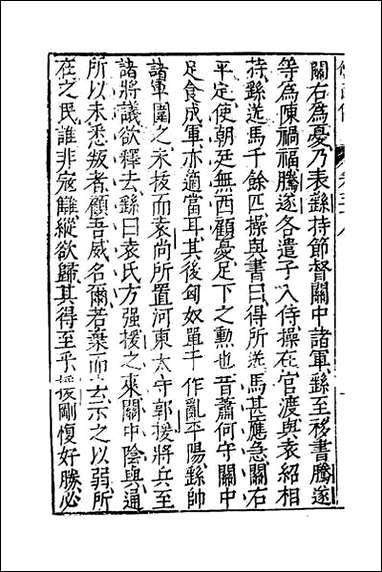 關右為憂乃表繇持節督關中諸軍繇至移書騰遂
等為陳禍福騰遂各遣子入侍操在官渡與袁紹相
持繇送馬千餘匹操與書曰得所送馬甚應急關右
平定使朝廷無西顧憂足下之勳也昔蕭何守關中
足食成軍亦適當耳其後匈奴單于作亂平陽繇帥
諸軍圍之未拔而袁尚所置河東太守郭援將兵至
諸將議欲釋去繇曰袁氏方强援之來關中陰與通
所以未悉叛者顧吾威名爾若棄而去示之以弱所
在之民誰非寇讎縱欲歸其得至乎援剛愎好勝必